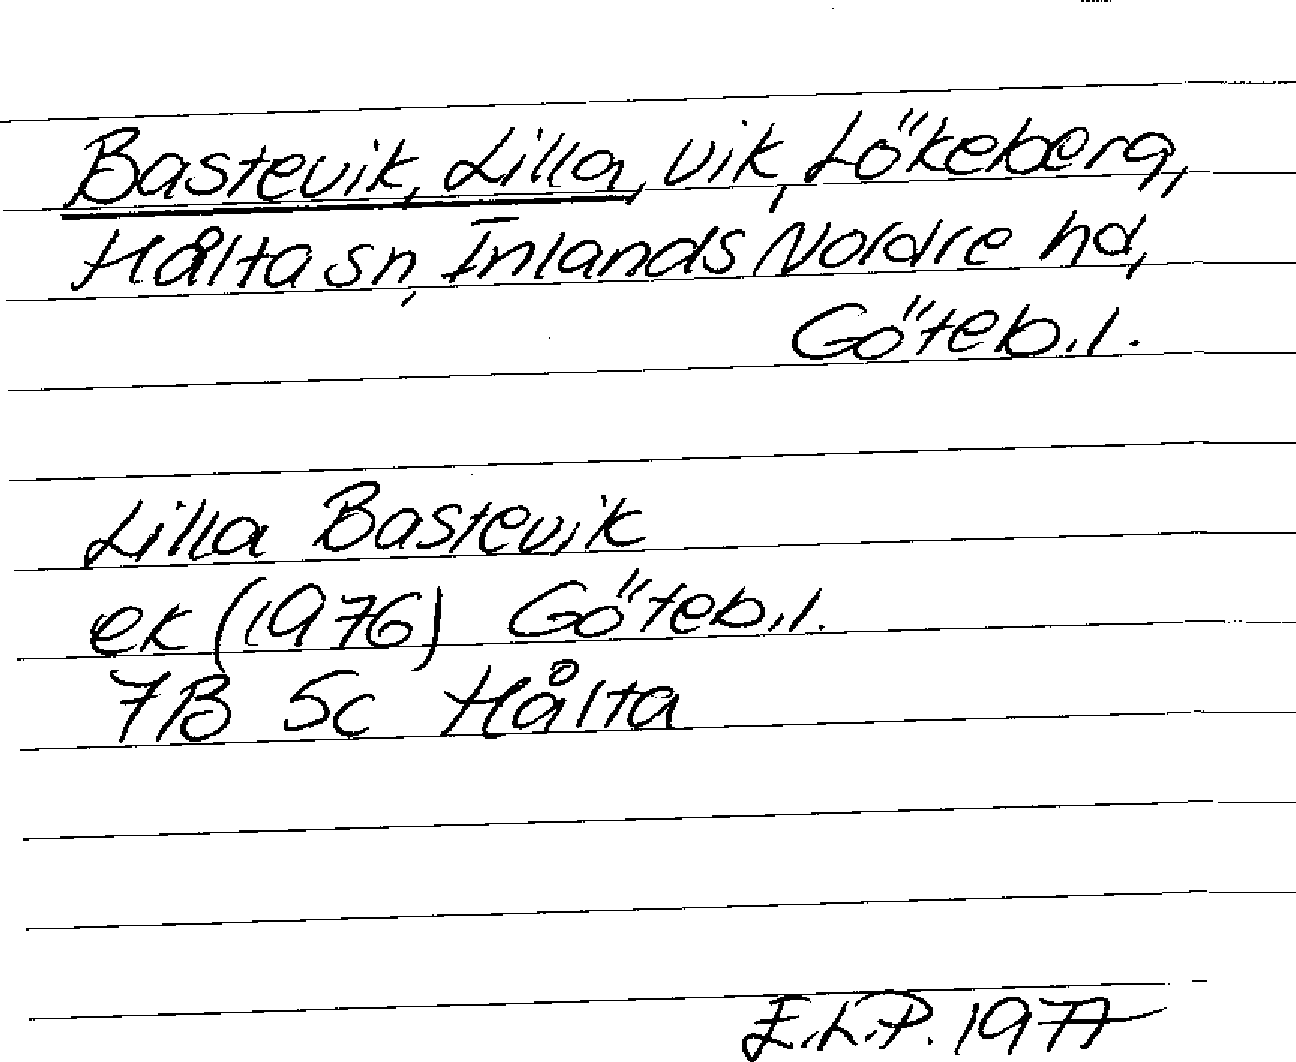 Bastevik, Lilla, vik, Lökeberg,
Hålta sn, Inlands Nordre hd,
Göteb.l.
Lilla Bastevik
ek (1976) Göteb.l.
7B 5c Hålta
E.L.P. 1977